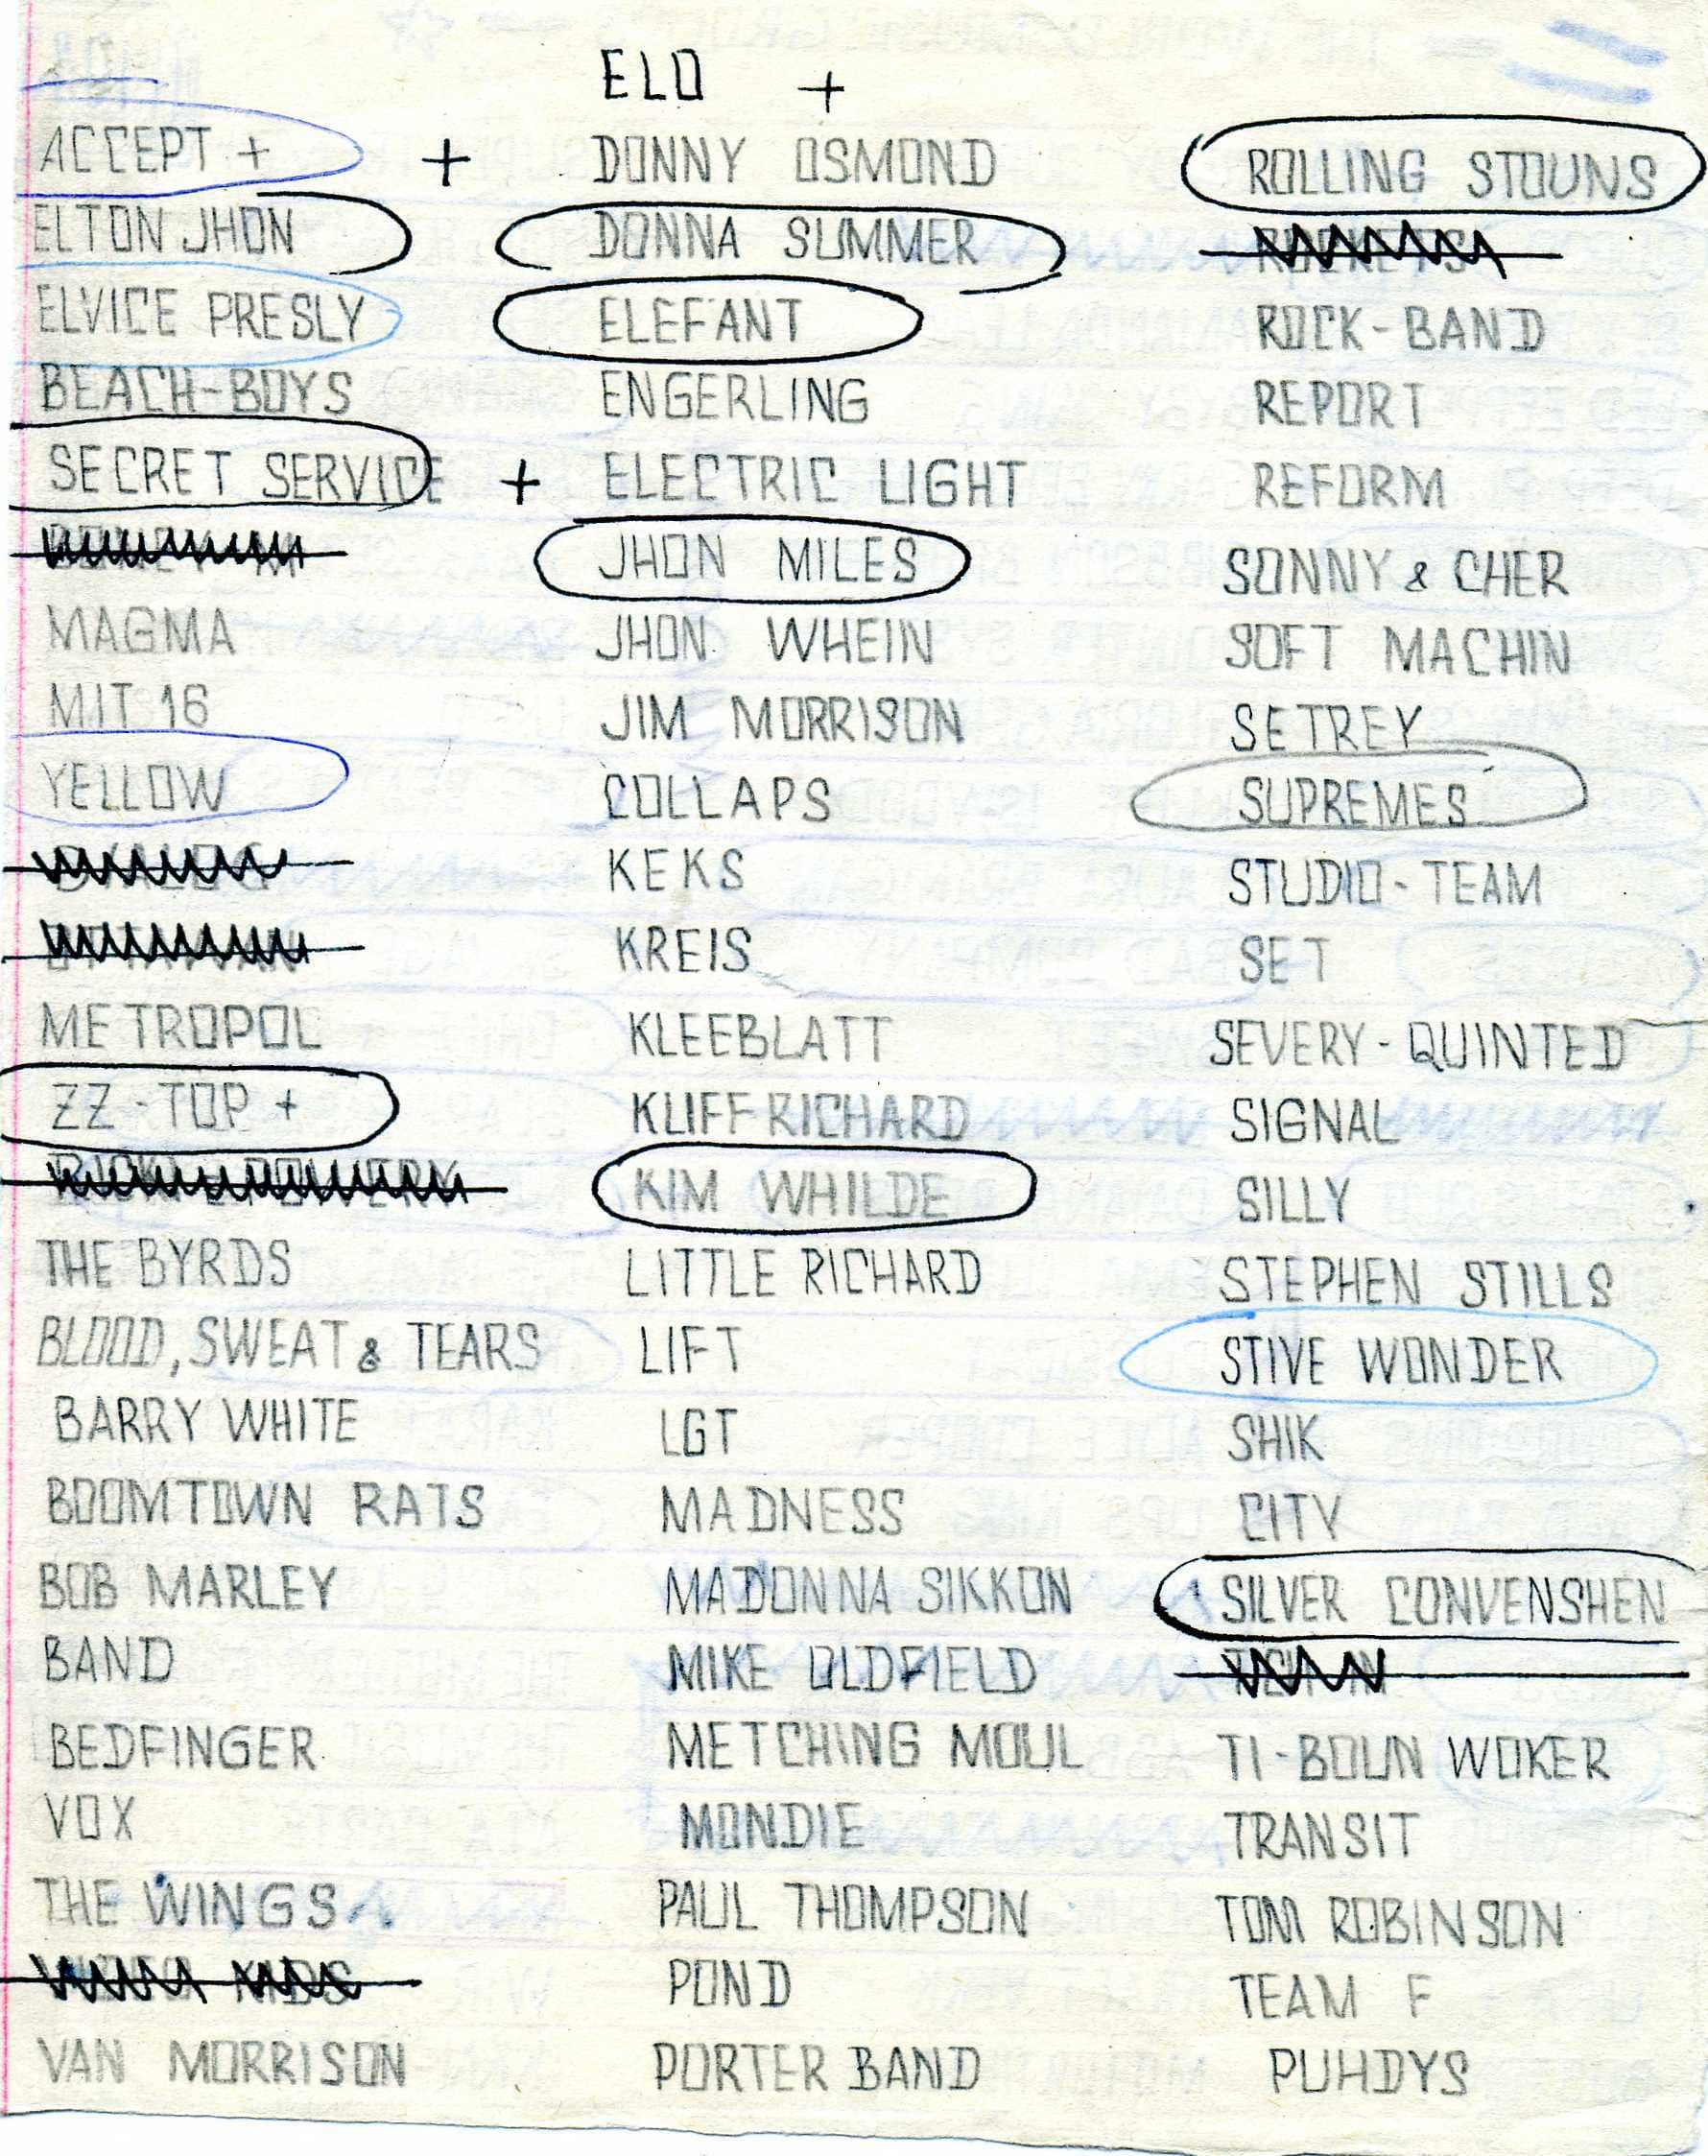 ELO +
ACCEPT +
ELTON JHON
ELVICE PRESLY
BEACH-BOYS
SECRET SERVICE
MAGMA
MIT 16
YELLOW
METROPOL
ZZ-TOP +
THE BYRDS
BLOOD, SWEAT & TEARS
BARRY WHITE
BOOMTOWN RATS
BOB MARLEY
BAND
BEDFINGER
VOX
THE WINGS
VAN MORRISON
+ DONNY OSMOND
DONNA SUMMER
ELEFANT
ENGERLING
+ ELECTRIC LIGHT
JHON MILES
JHON WHEIN
JIM MORRISON
COLLAPS
KEKS
KREIS
KLEEBLATT
KLIFF RICHARD
KIM WHILDE
LITTLE RICHARD
LIFT
LGT
MADNESS
MADONNA SIKKON
MIKE OLDFIELD
METCHING MOUL
MONDIE
PAUL THOMPSON
POND
PORTER BAND
ROLLING STOUNS
ROCK-BAND
REPORT
REFORM
SONNY & CHER
SOFT MACHIN
SETREY
SUPREMES
STUDIO-TEAM
SET
SEVERY-QUINTED
SIGNAL
SILLY
STEPHEN STILLS
STIVE WONDER
SHIK
CITY
SILVER CONVENSHEN
TI-BOUN WOKER
TRANSIT
TOM ROBINSON
TEAM F
PUHDYS